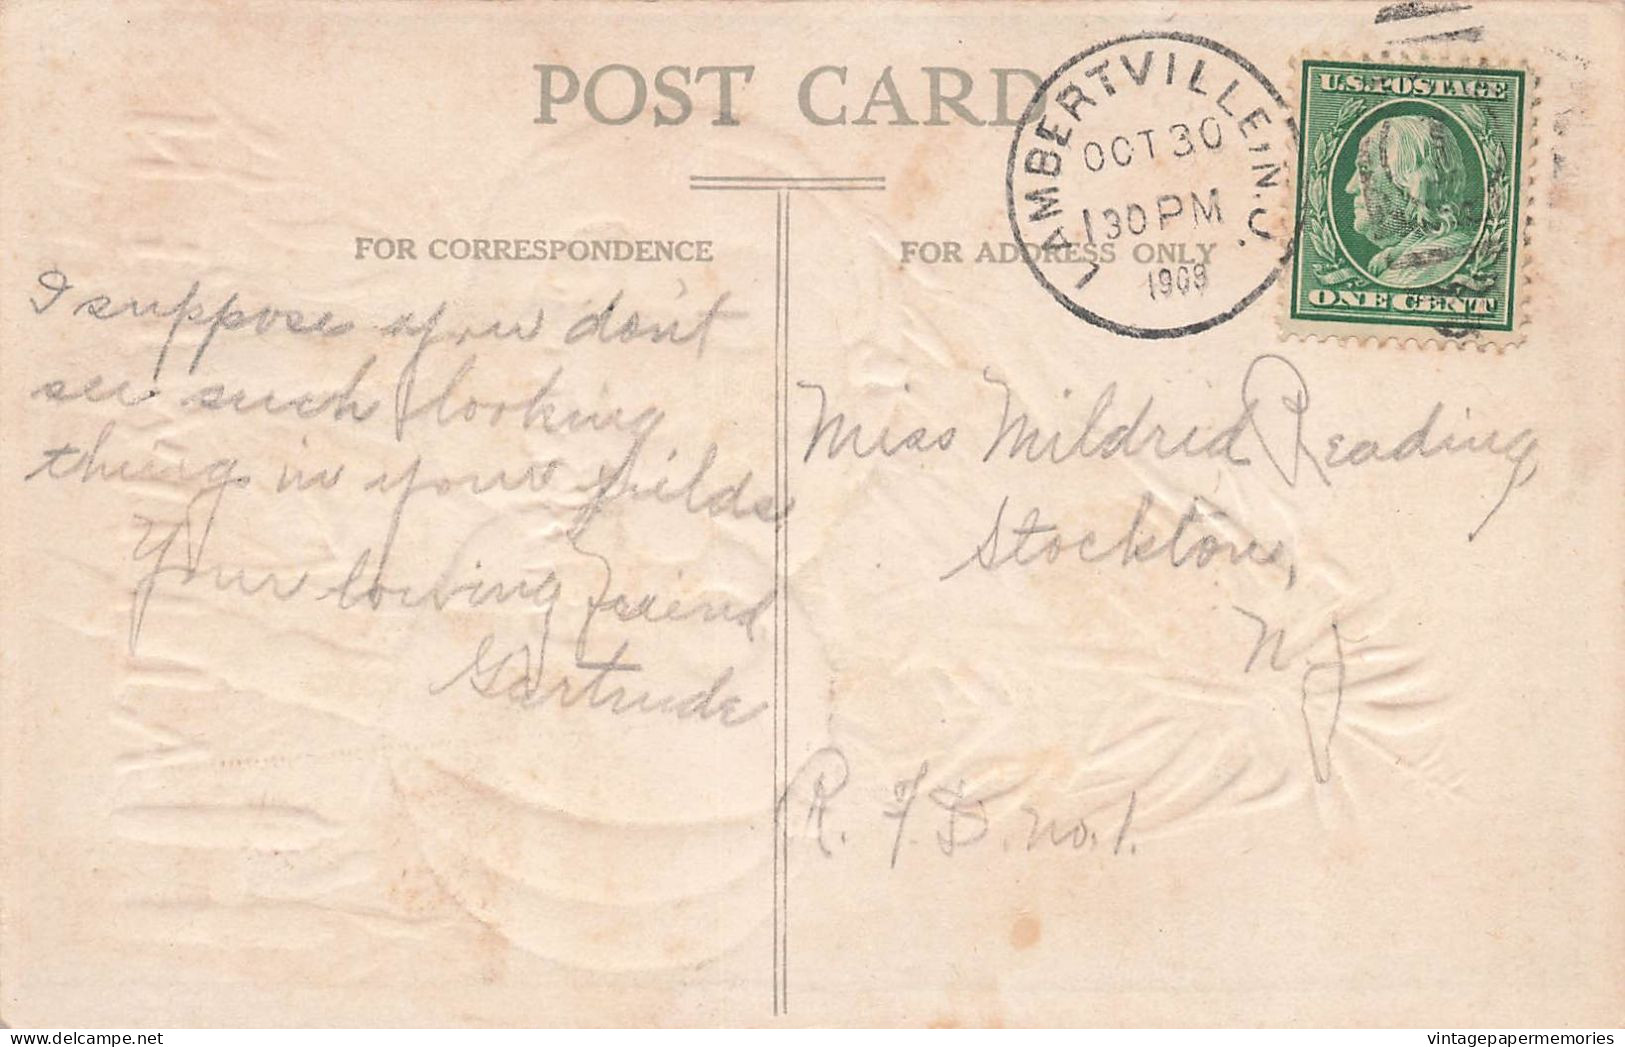 POST CARD
LAMBERTVILLE, N.J.
OCT 30
130 PM
1909
U.S. POSTAGE
ONE CENT
FOR CORRESPONDENCE
FOR ADDRESS ONLY
I suppose you don't
see such looking
thing in your fields
Your loving friend
Gertrude
Miss Mildred Reading,
Stockton,
N J
R. F. D. no. 1.
vintagepapermemories